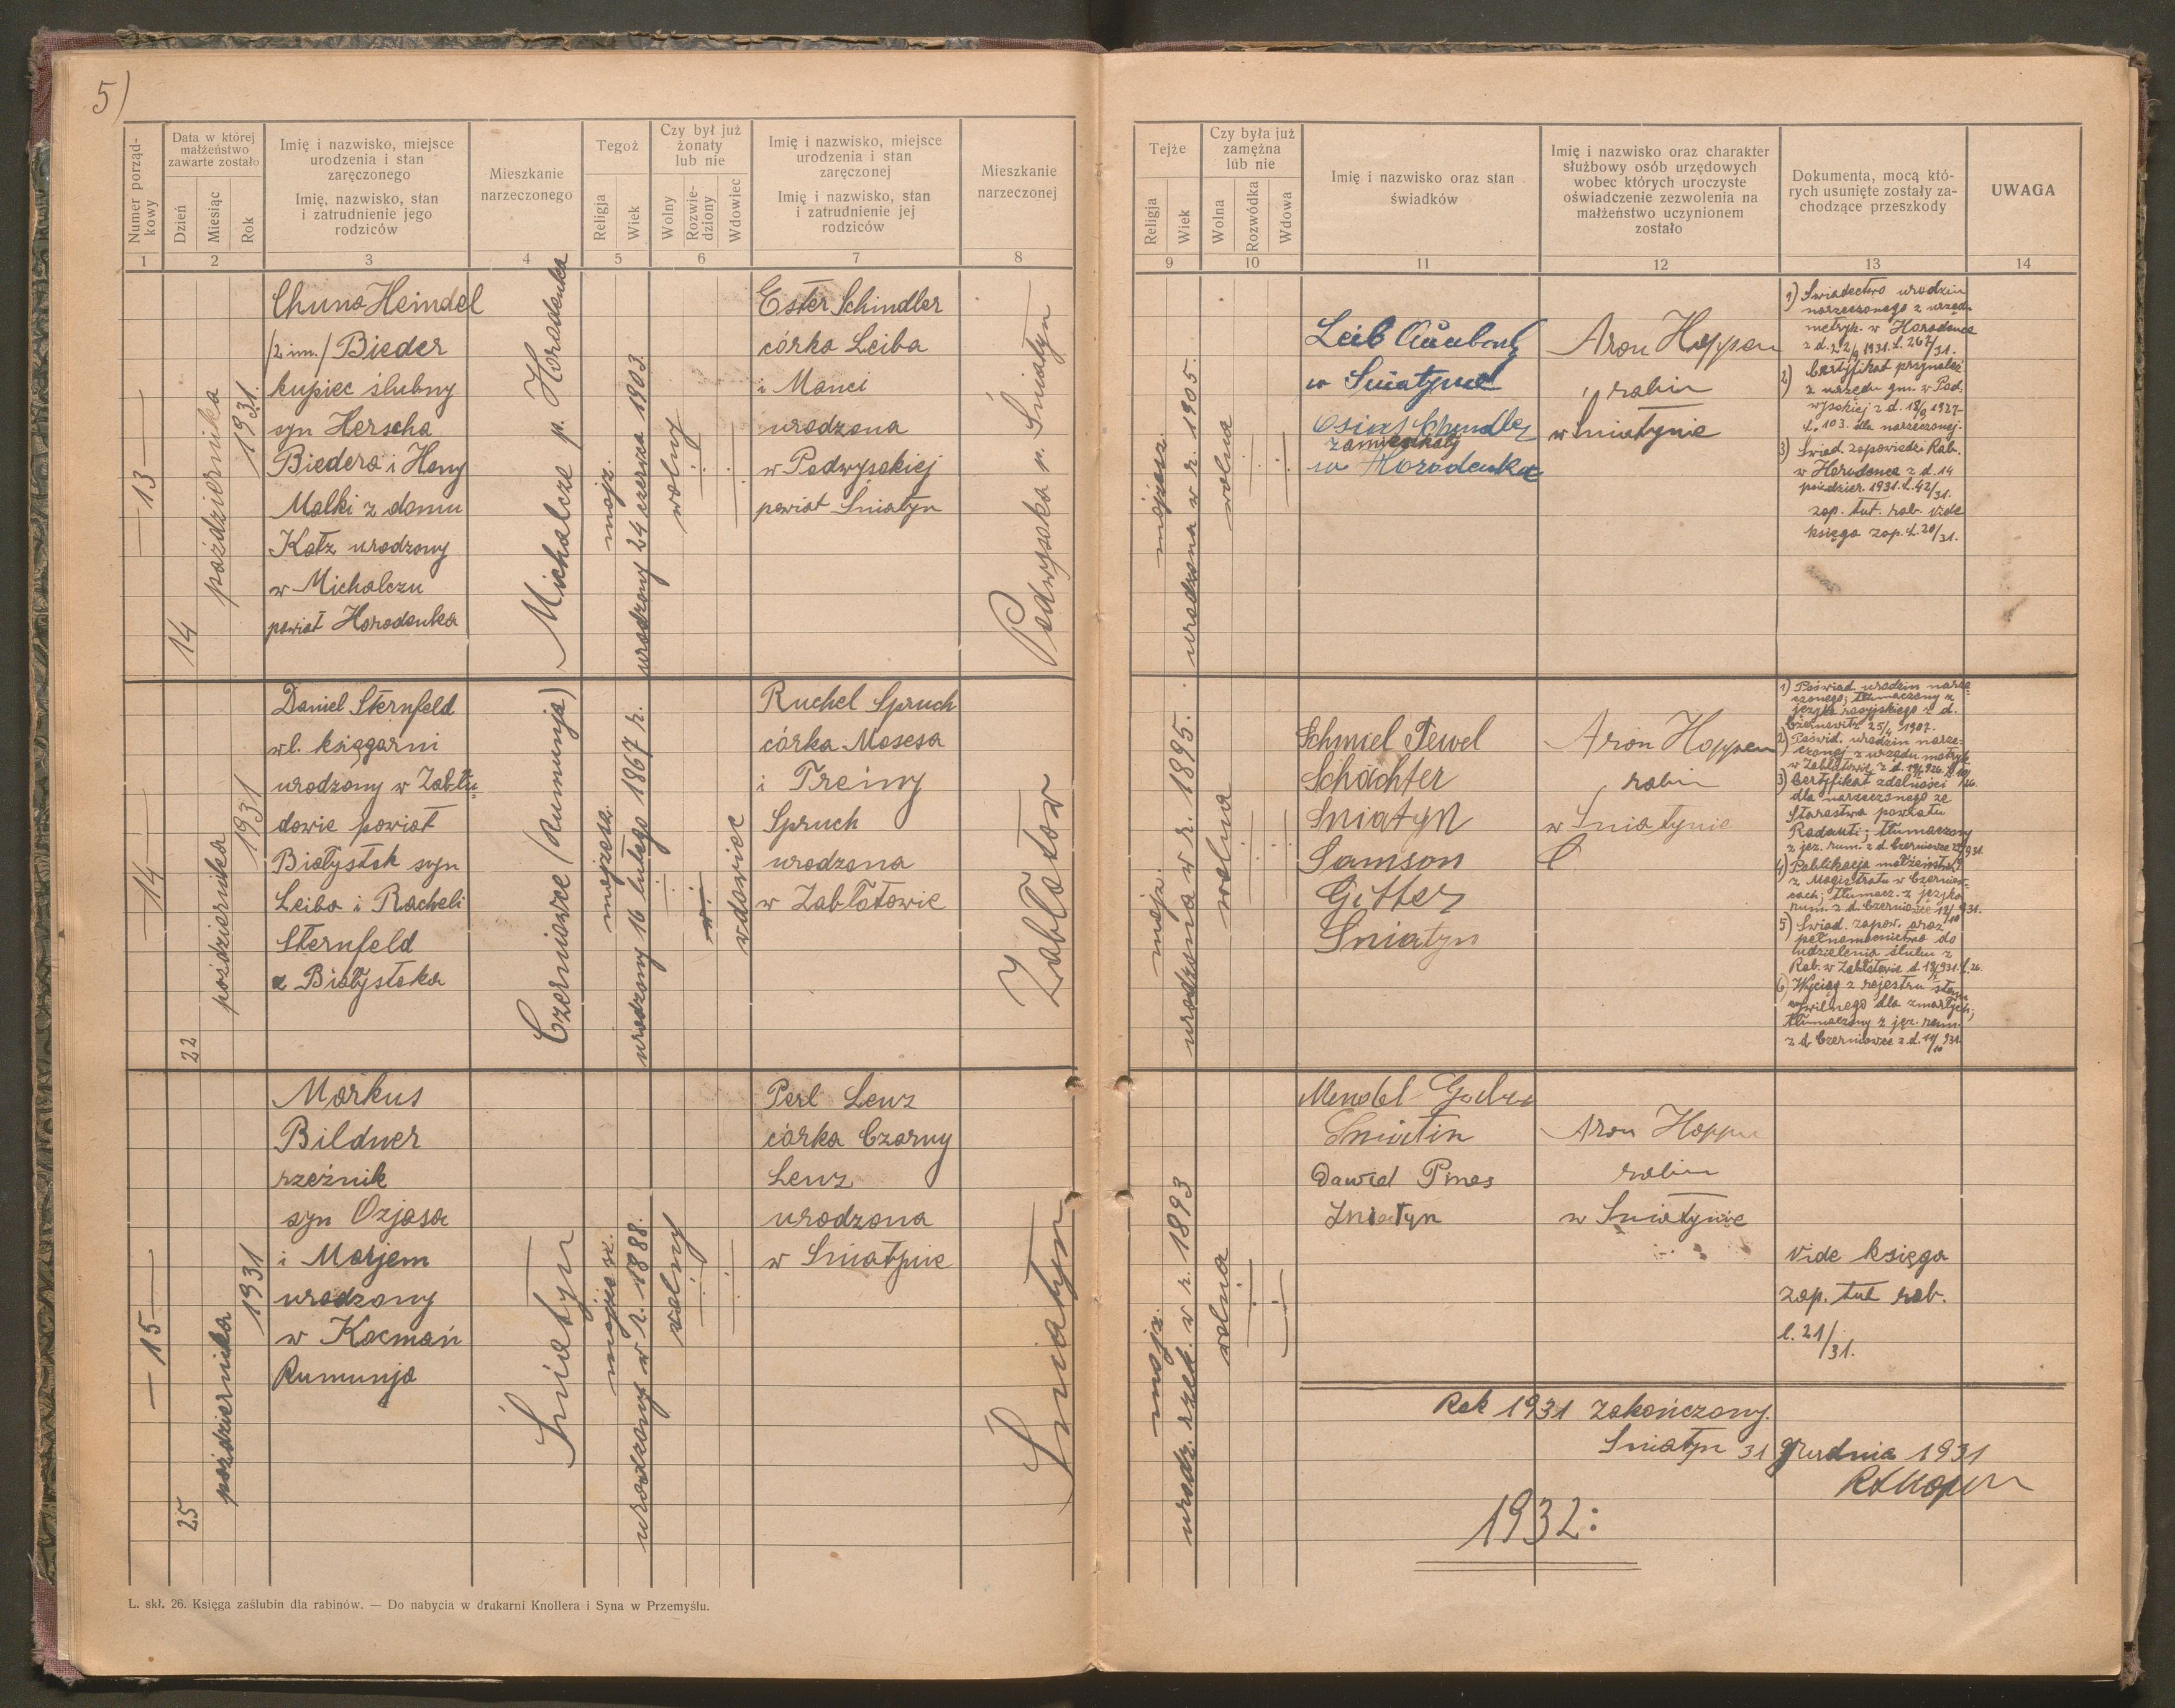 5)
Numer porządkowy
Data w której małżeństwo zawarte zostało
Dzień
Miesiąc
Rok
Imię i nazwisko, miejsce urodzenia i stan zaręczonego
Imię, nazwisko, stan i zatrudnienie jego rodziców
Mieszkanie narzeczonego
Tegoż
Religja
Wiek
Czy był już żonaty lub nie
Wolny
Rozwiedziony
Wdowiec
Imię i nazwisko, miejsce urodzenia i stan zaręczonej
Imię i nazwisko, stan i zatrudnienie jej rodziców
Mieszkanie narzeczonej
1 2 3 4 5 6 7 8
Tejże
Religja
Wiek
Czy była już zamężna lub nie
Wolna
Rozwódka
Wdowa
Imię i nazwisko oraz stan świadków
Imię i nazwisko oraz charakter służbowy osób urzędowych wobec których uroczyste oświadczenie zezwolenia na małżeństwo uczynionem zostało
Dokumenta, mocą których usunięte zostały zachodzące przeszkody
UWAGA
9 10 11 12 13 14
13
14
października
1931.
Chuna Heindel
/2 im./ Bieder
kupiec ślubny
syn Herscha
Biedera i Heny
Malki z domu
Katz urodzony
w Michalczu
powiat Horodenka
Michalcze p. Horodenka
mojż.
urodzony 24 czerwca 1903.
wolny
Ester Schindler
córka Leiba
i Manci
urodzona
w Podwysokiej
powiat Śniatyn
Podwysoka p. Śniatyn
mojżesz.
urodzona w r. 1905.
wolna
Leib
w Śniatynie
zamieszkały
w Horodenka
Aron Hoppen
rabin
w Śniatynie
1) Świadectwo urodzin
narzeczonego z urzędu
metryk. w Horodence
z d. 22/9 1931. L. 267/31.
2) Certyfikat przynależ.
z urzędu gm. w Pod.
wysokiej z d. 18/9 1927
L. 103. dla narzeczonej.
3) Świad. zapowiedzi Rab.
w Horodence z d. 14
paździer. 1931. L. 42/31.
zap. tut. rab. vide
księga zap. L. 20/31.
14
22
października
1931
Daniel Sternfeld
wł. księgarni
urodzony w Zabłu-
dowie powiat
Białystok syn
Leiba i Racheli
Sternfeld
z Białystoka
Czerniowce /Rumunja)
mojżesz.
urodzony 16 lutego 1867 r.
wdowiec
Ruchel Spruch
córka Mosesa
i Treiny
Spruch
urodzona
w Zabłotowie
Zabłotow
mojż.
urodzona w r. 1895.
wolna
Schmiel Tewel
Schächter
Sniatyn
Samson
Gitter
Sniatyn
Aron Hoppen
rabin
w Śniatynie
1) Poświad. urodzin narze-
czonego; tłumaczony z
języka rosyjskiego z d.
25/4 1907.
2) Poświd. urodzin narze-
czonej z urzędu metryk.
w Zabłotowie z d.
3) Certyfikat zdolności
dla narzeczonego ze
Starostwa powiatu
Radauti; tłumaczony
z jęz. rum. z d. Czerniowce
4) Publikacja małżeństwa
z Magistratu w Czerniow-
cach; tłumacz. z języka
rum. z d. Czerniowce 12/10 931.
5) Świad. zapow. oraz
pełnomocnictwo do
udzielenia ślubu z
Rab. w Zabłotowie
6) Wyciąg z rejestru stanu
cywilnego dla zmarłych;
tłumaczony z jęz. rum.
z d. Czerniowce z d. 19/10 931
15
25
października
1931
Markus
Bildner
rzeźnik
syn Ozjasa
i Marjem
urodzony
w Kocmań
Rumunja
Śniatyn
mojżesz.
urodzony w r. 1888.
wolny
Perl Lenz
córka Czarny
Lenz
urodzona
w Śniatynie
Śniatyn
mojż.
urodz. rzek. w r. 1893
wolna
Mendel
Sniatin
Dawid Pines
Sniatyn
Aron Hoppen
rabin
w Śniatynie
Vide księga
zap. tut rab.
l. 21/31.
Rok 1931 zakończony.
Śniatyn 31 grudnia 1931
1932:
L. skł. 26. Księga zaślubin dla rabinów. — Do nabycia w drukarni Knollera i Syna w Przemyślu.